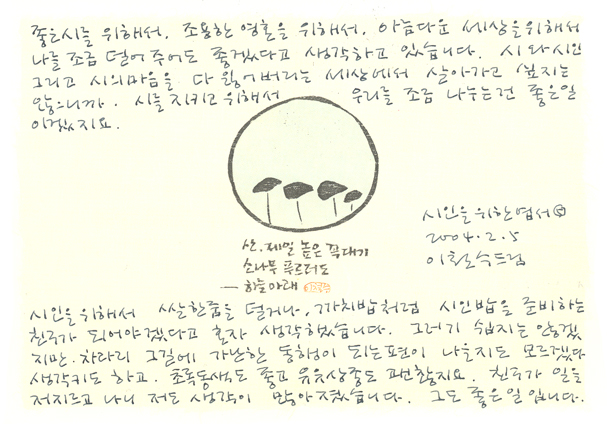 좋은 시를 위해서, 조용한 영혼을 위해서, 아름다운 세상을 위해서
나를 조금 덜어 주어도 좋겠다고 생각하고 있습니다. 시와 시인
그리고 시의 마음을 다 잃어버리는 세상에서 살아가고 싶지는
않으니까. 시를 지키고 위해서 우리를 조금 나누는 건 좋은 일
이겠지요.
시인을 위한 엽서
2004.2.5
이철수드림
산. 제일 높은 꼭대기
소나무 푸르러도
— 하늘 아래
시인을 위해서 쌀 한줌을 덜거나, 까치밥처럼 시인밥을 준비하는
친구가 되어야겠다고 혼자 생각했습니다. 그러기 쉽지는 않겠
지만. 차라리 그 길에 가난한 동행이 되는 편이 나을지도 모르겠다
생각키도 하고. 초록동색도 좋고 유유상종도 괜찮지요. 친구가 일을
저지르고 나니 저도 생각이 많아졌습니다. 그도 좋은 일입니다.